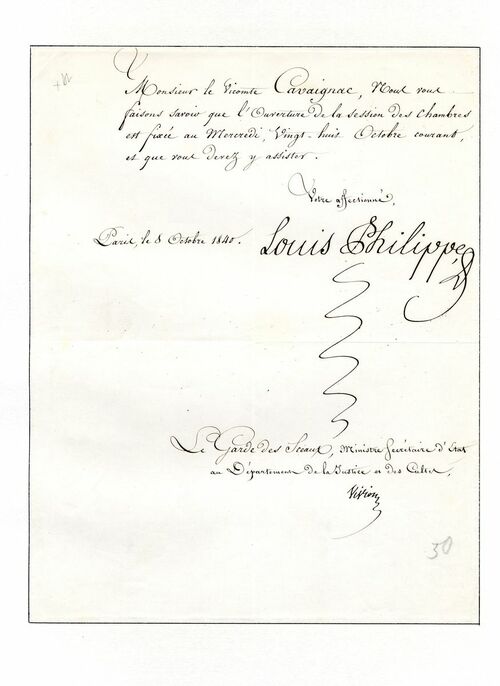 Monsieur le Vicomte Cavaignac, Nous vous
faisons savoir que l'Ouverture de la session des Chambres
est fixée au Mercredi, Vingt-huit Octobre courant,
et que vous devez y assister.
Votre affectionné,
Paris, le 8 Octobre 1840.
Louis Philippe
Le Garde des Sceaux, Ministre Secrétaire d'Etat
au Département de la Justice et des Cultes,
Vivien
30